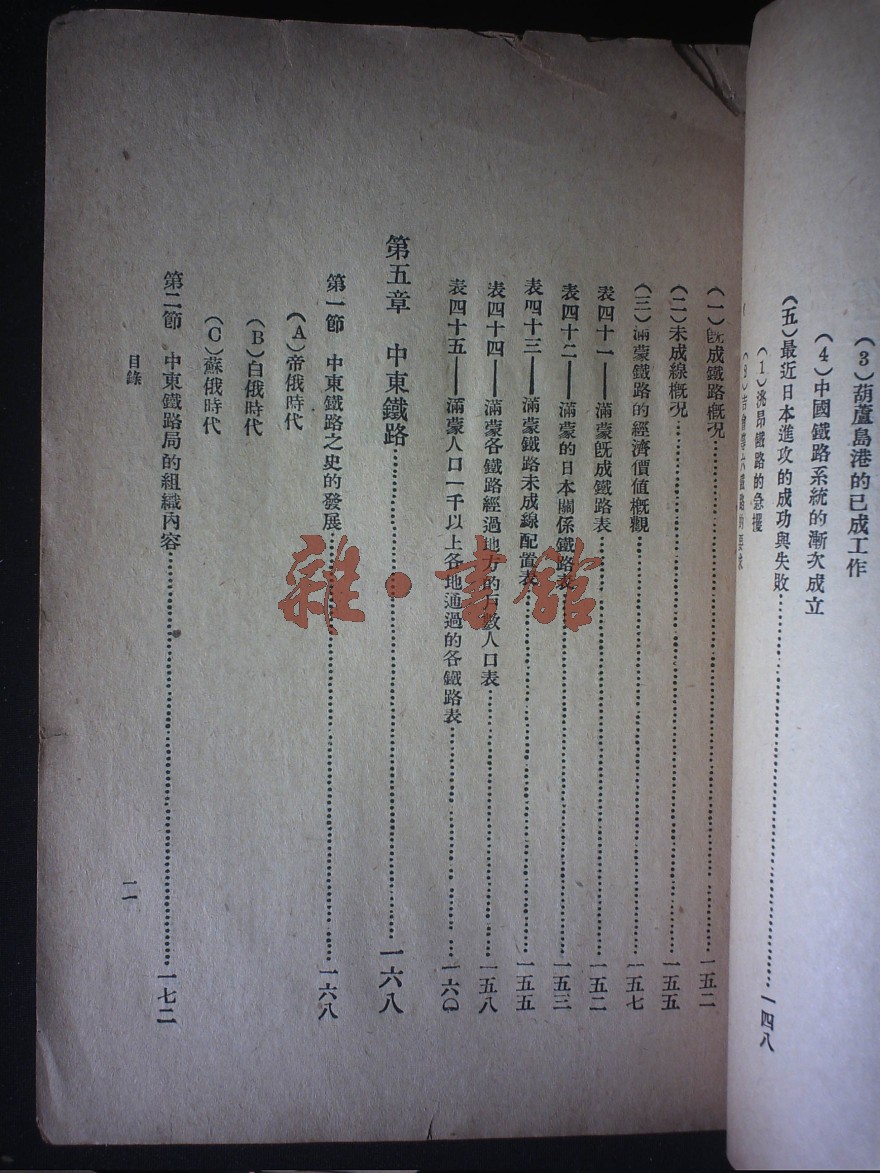 (3)葫蘆島港的已成工作
(4)中國鐵路系統的漸次成立
(五)最近日本進攻的成功與失敗……一四八
(1)洮昂鐵路的急攫
(一)既成鐵路概況……一五二
(二)未成線概況……一五五
(三)滿蒙鐵路的經濟價值概觀……一五七
表四十一——滿蒙既成鐵路表……一五二
表四十二——滿蒙的日本關係鐵路表……一五三
表四十三——滿蒙鐵路未成線配置表……一五五
表四十四——滿蒙各鐵路經過地方的戶數人口表……一五八
表四十五——滿蒙人口一千以上各地通過的各鐵路表……一六〇
第五章 中東鐵路……一六八
第一節 中東鐵路之史的發展……一六八
(A)帝俄時代
(B)白俄時代
(C)蘇俄時代
第二節 中東鐵路局的組織內容……一七二
目錄
二
雜·書館